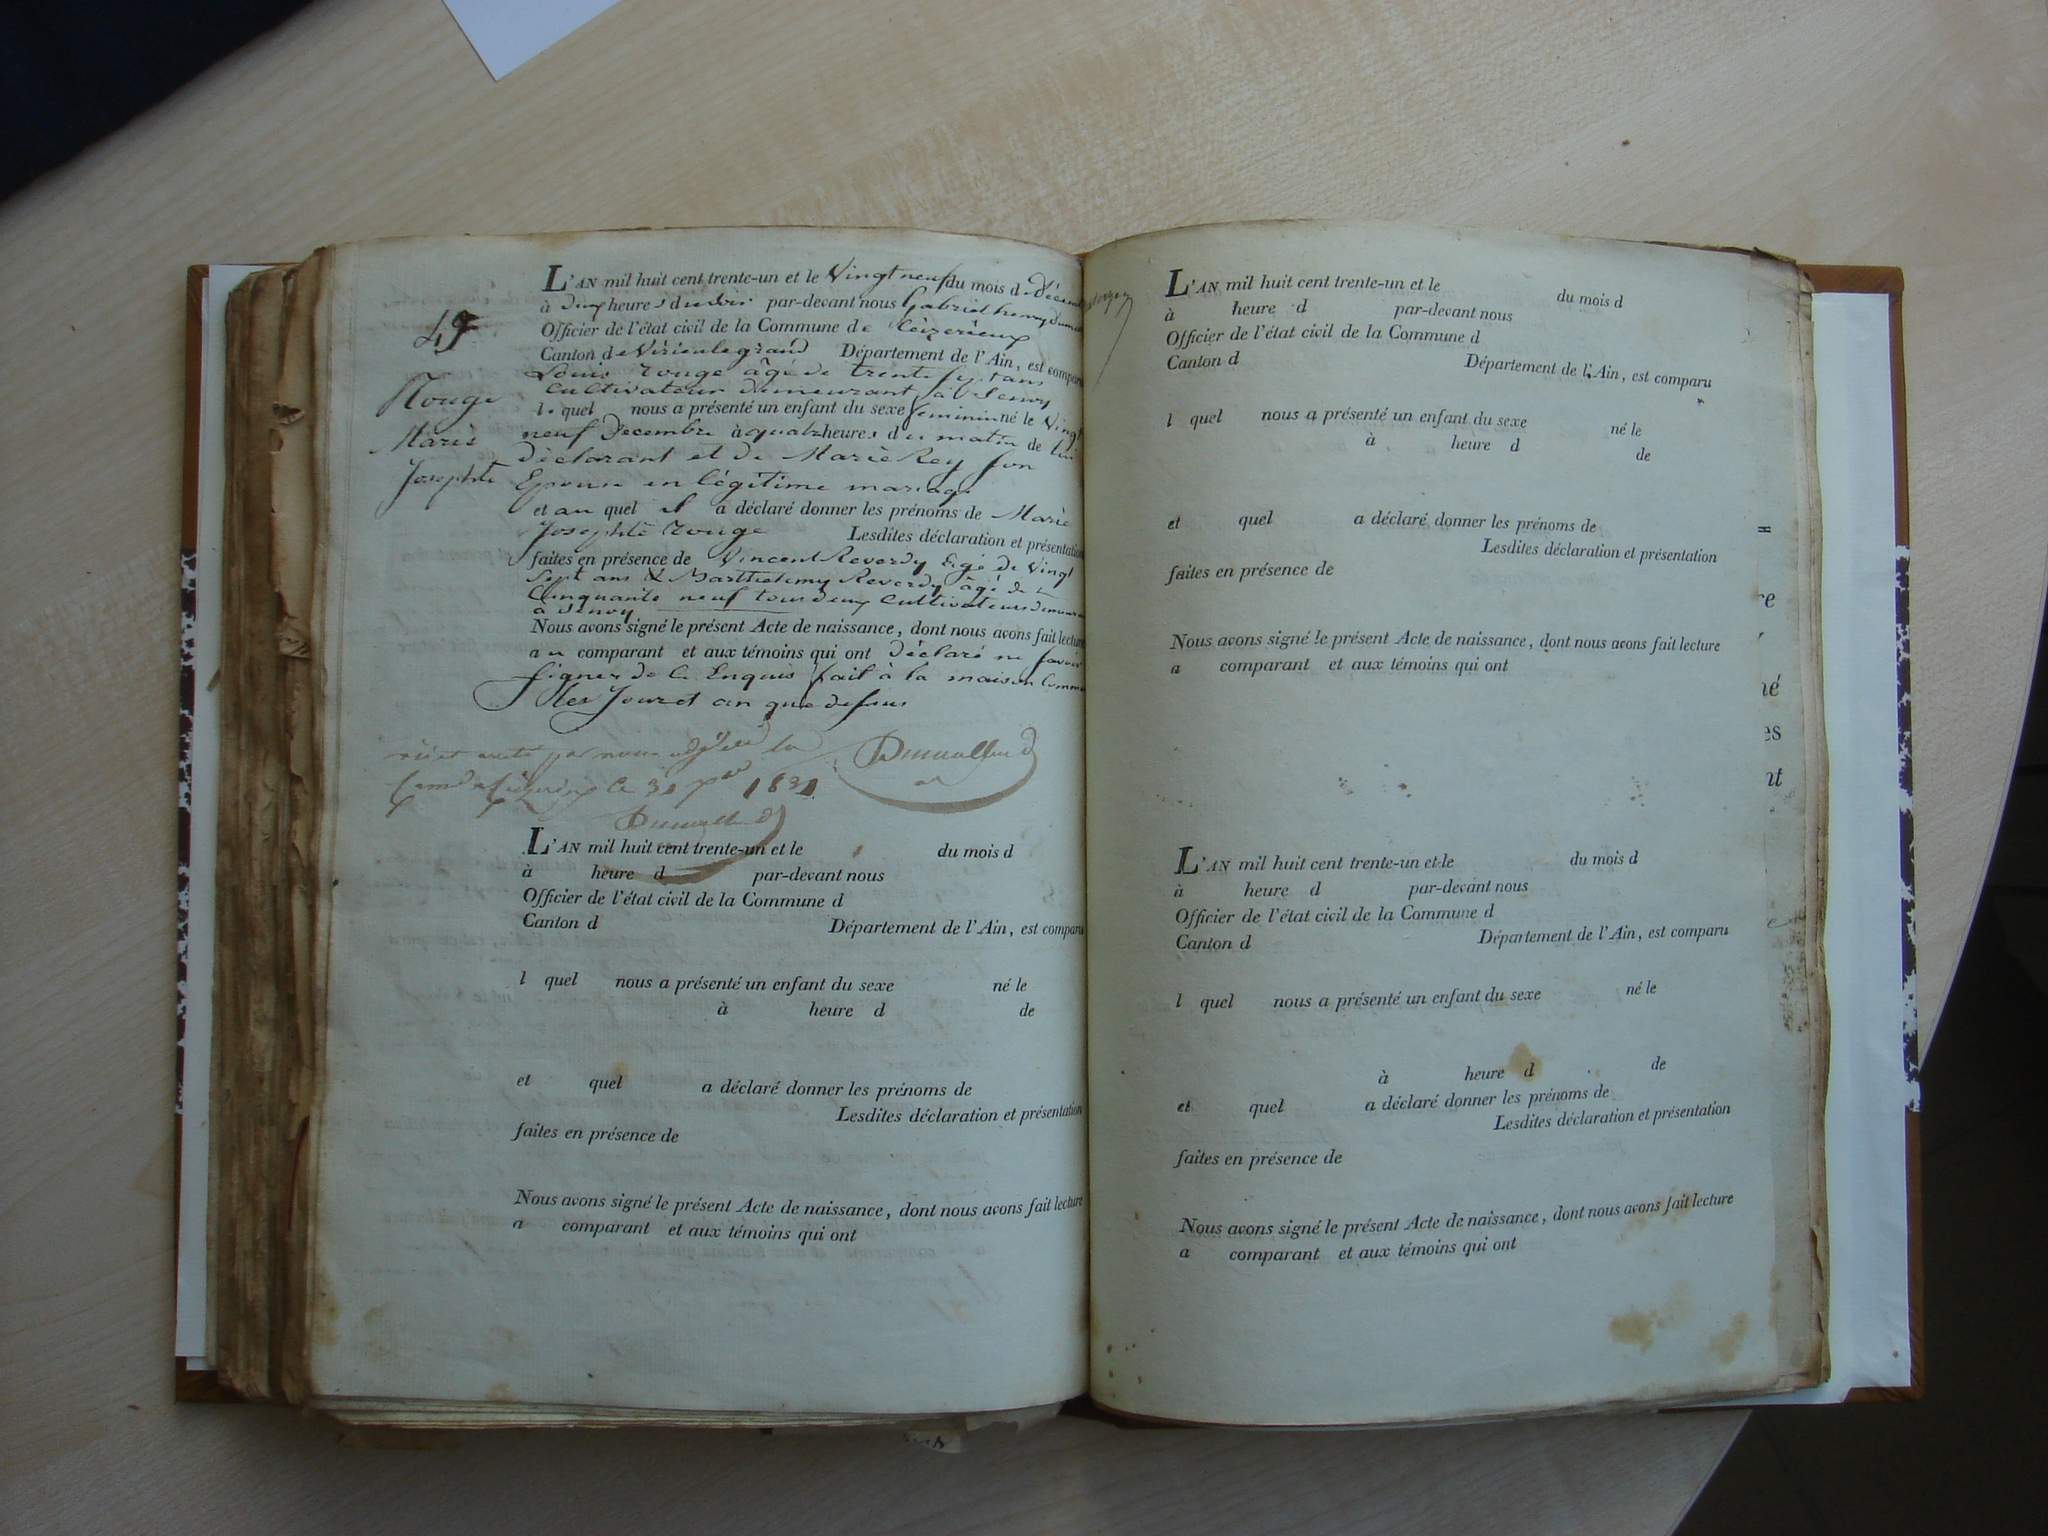 L'AN mil huit cent trente-un et le Vingt neuf du mois de Décem
à dix heures du soir par-devant nous Gabriel henry
Officier de l'état civil de la Commune de Ceizerieux
Canton de Virieu le grand Département de l'Ain, est comparu
49
Louis rouge âgé de trente sept ans
Cultivateur demeurant à
Rouge
Marie
Josephte
l quel nous a présenté un enfant du sexe feminin né le Vingt
neuf Decembre à quatre heures du matin de lui
déclarant et de Marie Rey son
Epouse en légitime mariage
et au quel il a déclaré donner les prénoms de Marie
Josephte rouge Lesdites déclaration et présentation
faites en présence de Vincent Reverdy âgé de Vingt
Sept ans & Barthelemy Reverdy âgé de
Cinquante neuf tous deux Cultivateurs
à
Nous avons signé le présent Acte de naissance, dont nous avons fait lecture
au comparant et aux témoins qui ont déclaré ne savoir
signer de ce Enquis fait à la maison Commu
les Jour et an que dessus
par nous la
le 31 1831
L'AN mil huit cent trente-un et le du mois d
à heure d par-devant nous
Officier de l'état civil de la Commune d
Canton d Département de l'Ain, est comparu
l quel nous a présenté un enfant du sexe né le
à heure d de
et quel a déclaré donner les prénoms de
Lesdites déclaration et présentation
faites en présence de
Nous avons signé le présent Acte de naissance, dont nous avons fait lecture
a comparant et aux témoins qui ont
L'AN mil huit cent trente-un et le du mois d
à heure d par-devant nous
Officier de l'état civil de la Commune d
Canton d Département de l'Ain, est comparu
l quel nous a présenté un enfant du sexe né le
à heure d de
et quel a déclaré donner les prénoms de
Lesdites déclaration et présentation
faites en présence de
Nous avons signé le présent Acte de naissance, dont nous avons fait lecture
a comparant et aux témoins qui ont
L'AN mil huit cent trente-un et le du mois d
à heure d par-devant nous
Officier de l'état civil de la Commune d
Canton d Département de l'Ain, est comparu
l quel nous a présenté un enfant du sexe né le
à heure d de
et quel a déclaré donner les prénoms de
Lesdites déclaration et présentation
faites en présence de
Nous avons signé le présent Acte de naissance, dont nous avons fait lecture
a comparant et aux témoins qui ont